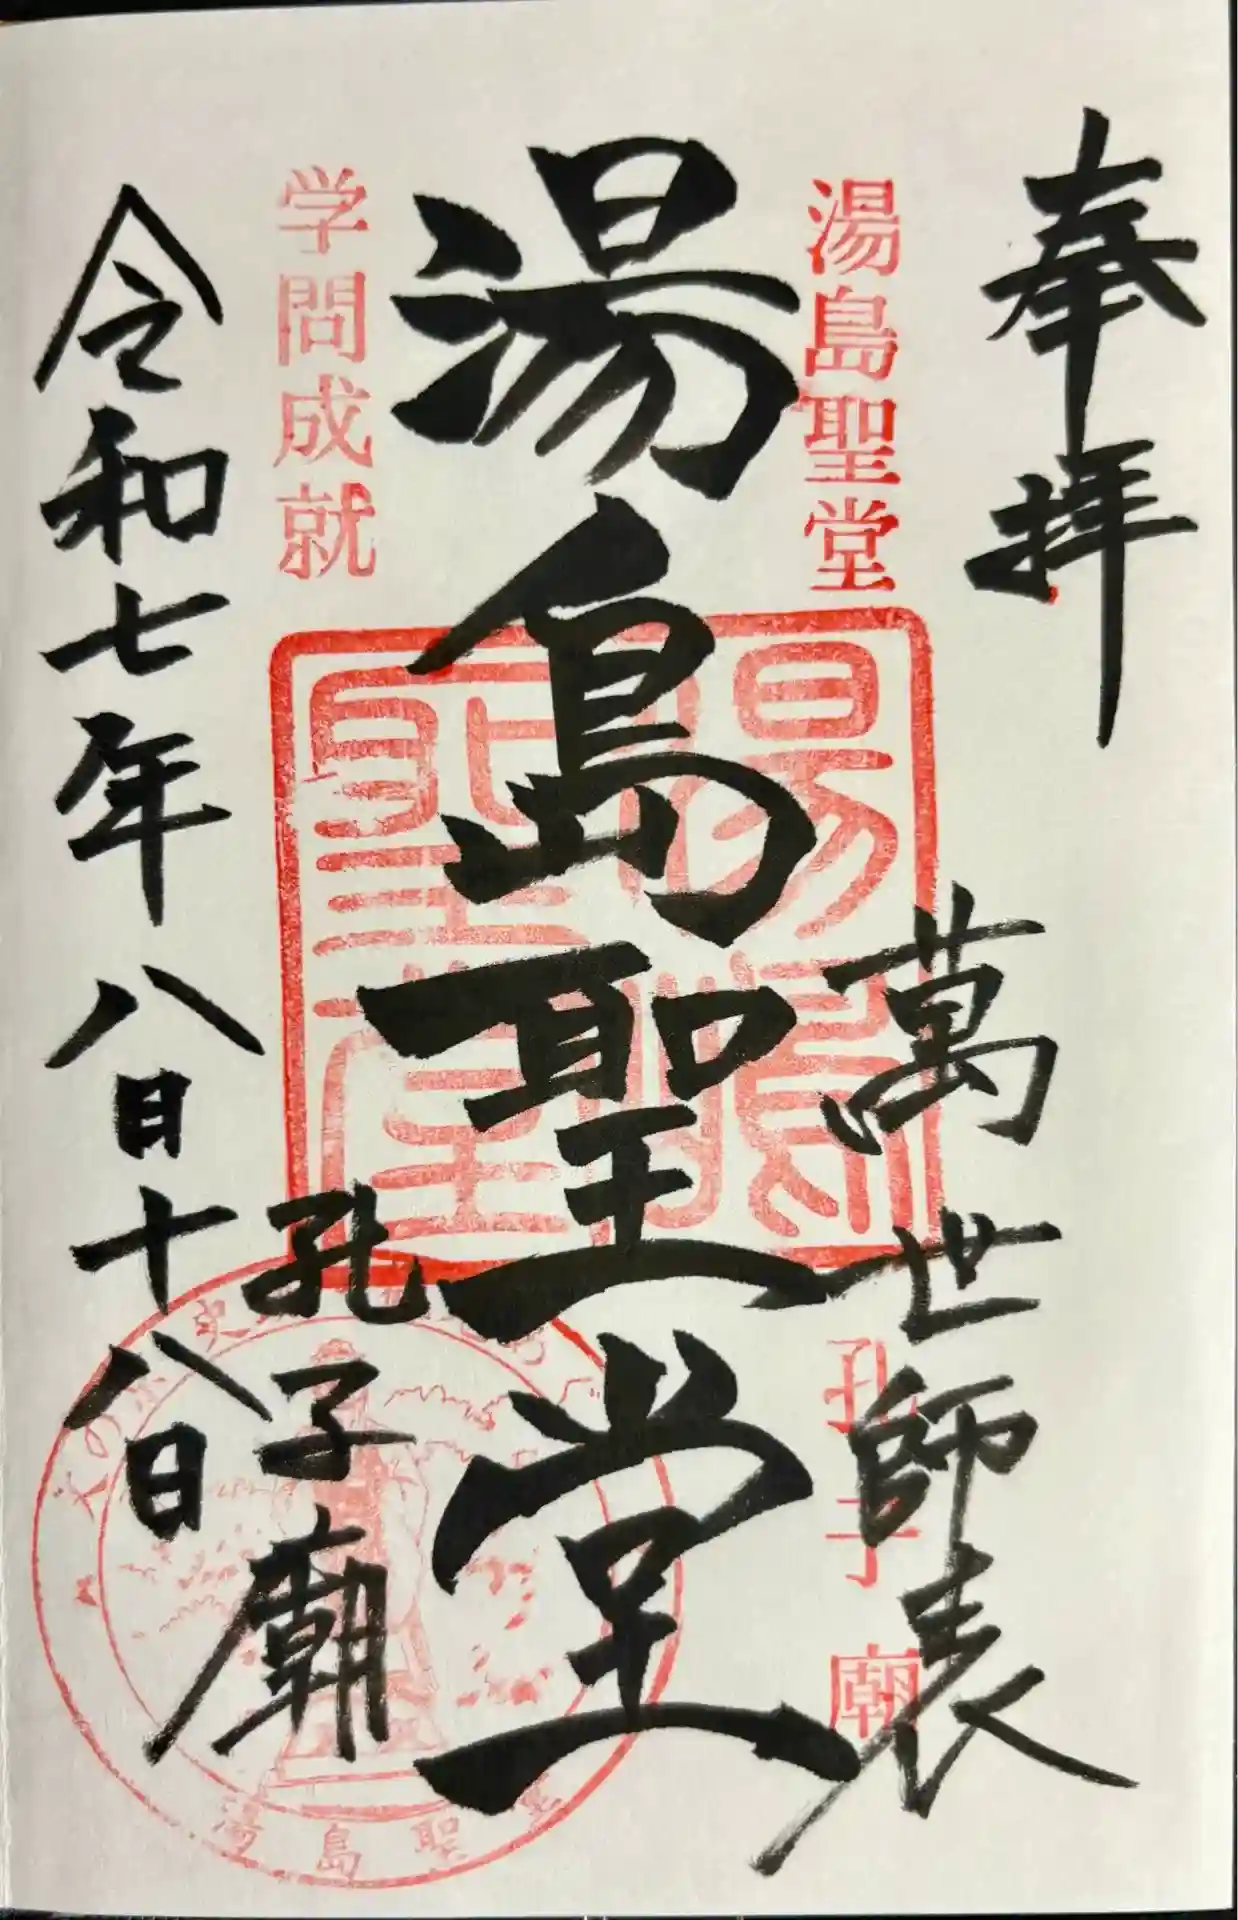 奉拝
萬世師表
湯島聖堂
孔子廟
湯島聖堂
孔子廟
学問成就
令和七年八日十八日
湯島聖堂
湯島聖